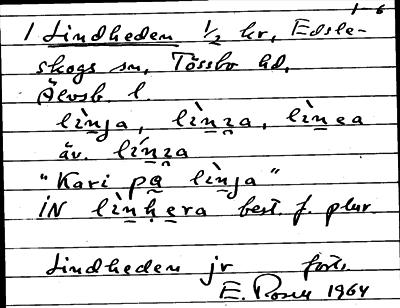 1-6
1 Lindheden 1/2 kr, Edsle-
skogs sn, Tössbo hd,
Älvsb. l.
lìn̲ja, lìn̲i̯a, lìn̲ea
äv. lín̲i̯a
"Kari på lìn̲ja"
IN lìn̲ḥe̲ra best. f. plur.
Lindheden jr forts.
E. Rosell 1964